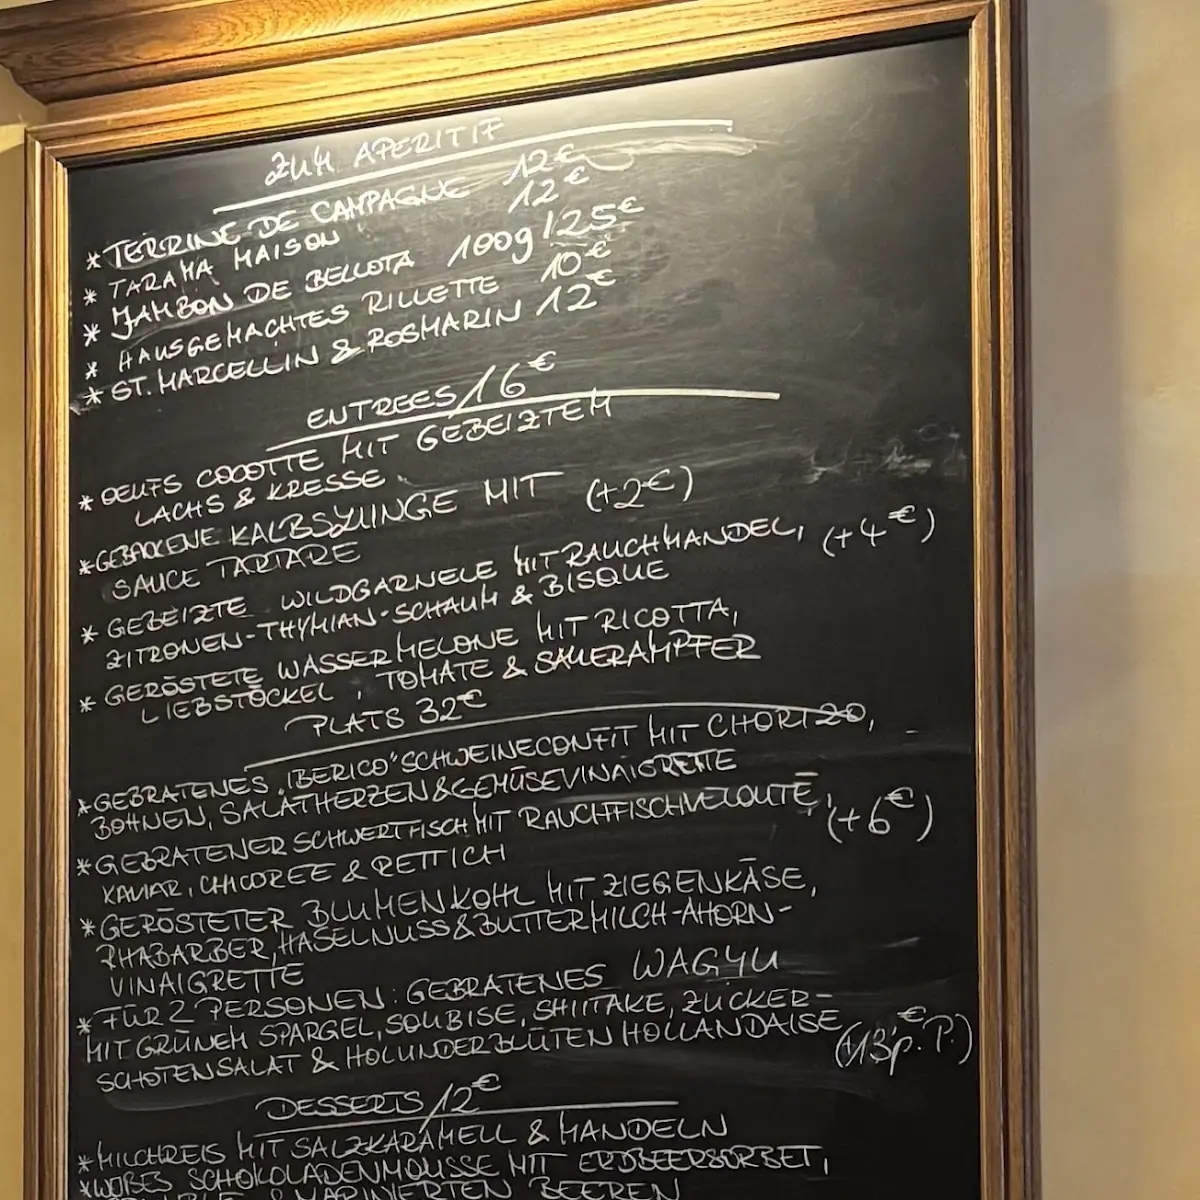 ZUM APERITIF
* TERRINE DE CAMPAGNE 12€
* TARAMA MAISON 12€
* JAMBON DE BELLOTA 100g/25€
* HAUSGEMACHTES RILLETTE 10€
* ST. MARCELLIN & ROSMARIN 12€
ENTREES/16€
* OEUFS COCOTTE MIT GEBEIZTEM
LACHS & KRESSE
* GEBACKENE KALBSZUNGE MIT (+2€)
SAUCE TARTARE
* GEBEIZTE WILDGARNELE MIT RAUCHMANDEL, (+4€)
ZITRONEN-THYMIAN-SCHAUM & BISQUE
* GERÖSTETE WASSERMELONE MIT RICOTTA,
LIEBSTÖCKEL, TOMATE & SAUERAMPFER
PLATS 32€
* GEBRATENES „IBERICO" SCHWEINECONFIT MIT CHORIZO,
BOHNEN, SALATHERZEN & GEMÜSEVINAIGRETTE
* GEBRATENER SCHWERTFISCH MIT RAUCHFISCHVELOUTÉ, (+6€)
KAVIAR, CHICOREE & RETTICH
* GERÖSTETER BLUMENKOHL MIT ZIEGENKÄSE,
RHABARBER, HASELNUSS & BUTTERMILCH-AHORN-
VINAIGRETTE
* FÜR 2 PERSONEN: GEBRATENES WAGYU
MIT GRÜNEM SPARGEL, SOUBISE, SHIITAKE, ZUCKER-
SCHOTENSALAT & HOLUNDERBLÜTEN HOLLANDAISE (+13€ p. P.)
DESSERTS/12€
* MILCHREIS MIT SALZKARAMELL & MANDELN
* WEIßES SCHOKOLADENMOUSSE MIT ERDBEERSORBET,
& MARINIERTEN BEEREN